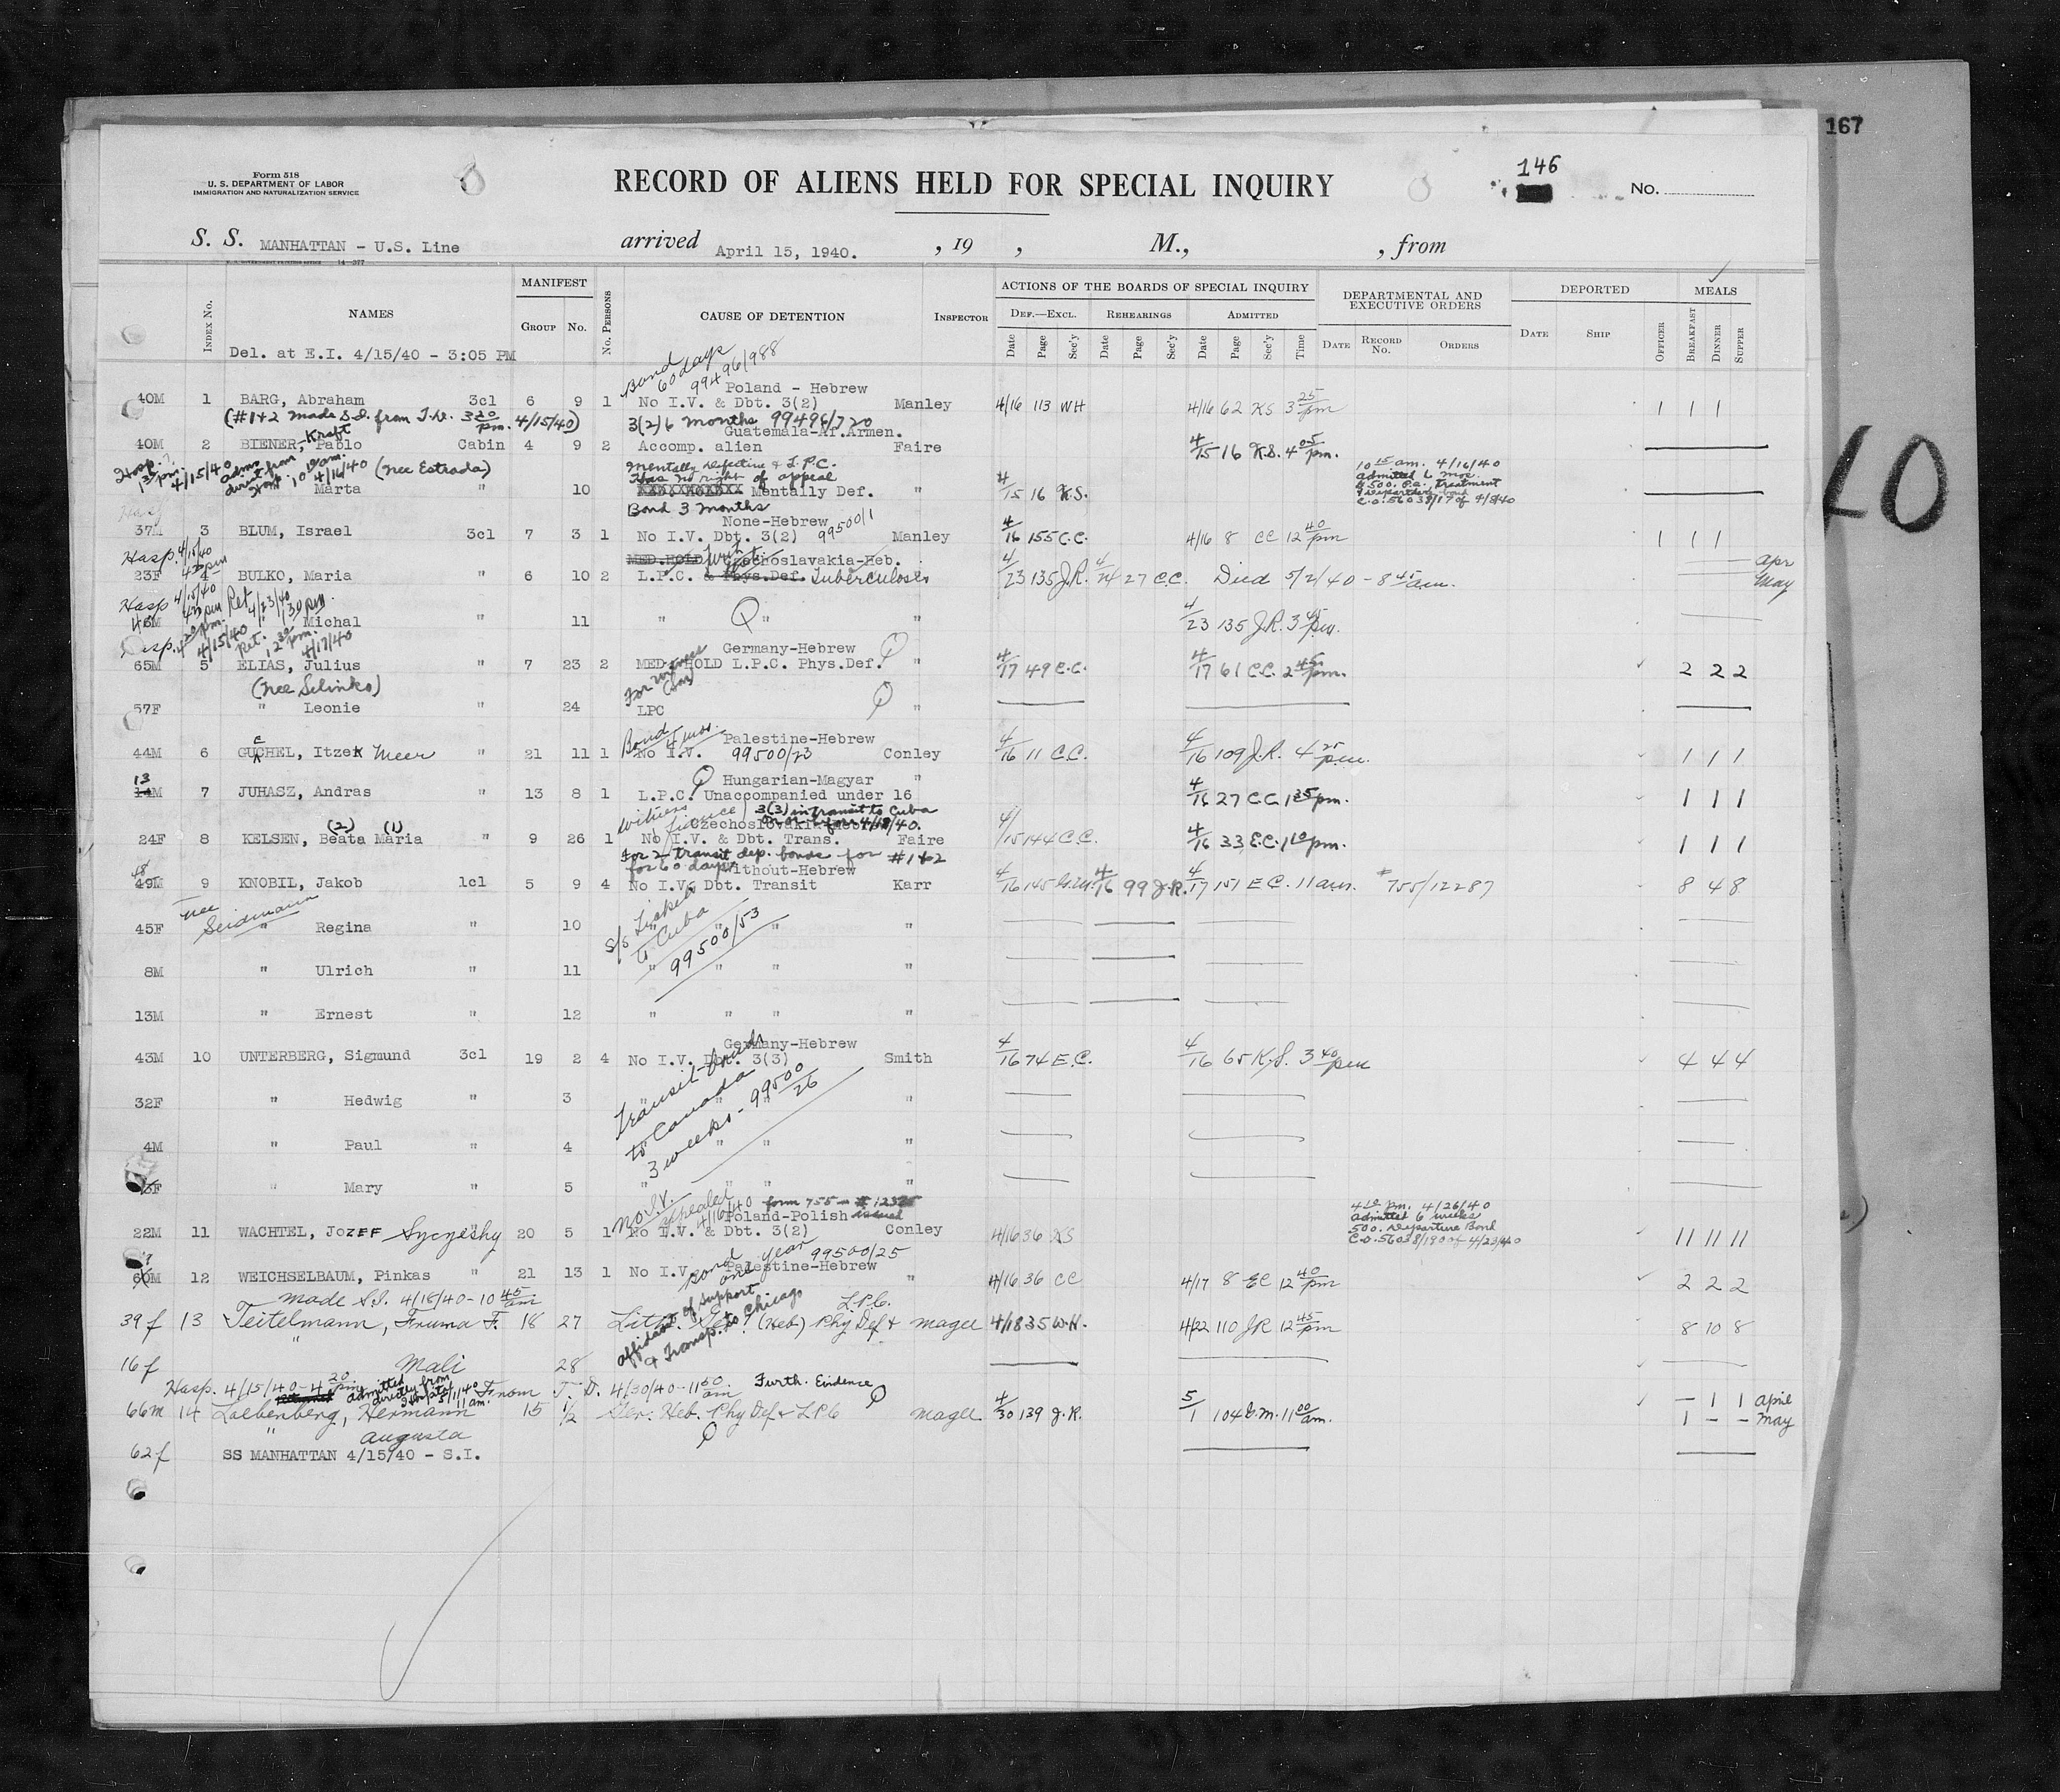 167
Form 518
U. S. DEPARTMENT OF LABOR
IMMIGRATION AND NATURALIZATION SERVICE
RECORD OF ALIENS HELD FOR SPECIAL INQUIRY
146
No.
S. S. MANHATTAN - U.S. Line arrived April 15, 1940. , 19 , M., , from
MANIFEST ACTIONS OF THE BOARDS OF SPECIAL INQUIRY DEPARTMENTAL AND EXECUTIVE ORDERS DEPORTED MEALS
INDEX No. NAMES GROUP No. No. PERSONS CAUSE OF DETENTION INSPECTOR DEF.—EXCL. REHEARINGS ADMITTED
Date Page Sec'y Date Page Sec'y Date Page Sec'y Time DATE RECORD No. ORDERS DATE SHIP OFFICER BREAKFAST DINNER SUPPER
Del. at E.I. 4/15/40 - 3:05 PM
Bond 60 days 99496/988
Poland - Hebrew
40M 1 BARG, Abraham 3cl 6 9 1 No I.V. & Dbt. 3(2) Manley 4/16 113 WH 4/16 62 KS 3 25 pm 1 1 1
(#1&2 made S.I. from T.D. 3 20 pm. 4/15/40) 3(2) 6 months 99496/720
Guatemala-Af.Armen.
40M 2 BIENER, Kraft Pablo Cabin 4 9 2 Accomp. alien Faire 4/15 16 K.S. 4 05 pm.
Hosp. 4/15/40 admn direct from Hosp. 10 15 am. 4/16/40 (nee Estrada) Mentally defective & L.P.C.
Has no right of appeal
Marta " 10 Mentally Def. " 4/15 16 K.S.
10 15 am. 4/16/40
Admitted 6 mos
$500. P.a. treatment
& Departure bond
C.O. 56038/17 of 4/8/40
Bond 3 months
None-Hebrew
37M 3 BLUM, Israel 3cl 7 3 1 No I.V. Dbt. 3(2) 99500/1 Manley 4/16 155 C.C. 4/16 8 CC 12 40 pm 1 1 1
Hosp. 4/15/40 MED. HOLD Czechoslavakia-Heb.
23F 4 BULKO, Maria " 6 10 2 L.P.C. & Phys.Def. Tuberculosis " 4/23 135 J.R. 4/24 27 C.C. Died 5/2/40 - 8 45 am. Apr May
Hosp 4/15/40 Ret 4/23/40 1:30 pm
46M Michal " 11 " " " 4/23 135 J.R. 3 45 pm.
4/15/40 Ret. 12 30 pm. 4/17/40 Germany-Hebrew
65M 5 ELIAS, Julius " 7 23 2 MED. HOLD L.P.C. Phys.Def. " 4/17 49 C.C. 4/17 61 C.C. 2 45 pm. 2 2 2
(nee Selinko) For witness (Son)
57F " Leonie " 24 LPC "
Bond 4 mos. Palestine-Hebrew
44M 6 GUCHEL, Itzek Meer " 21 11 1 No I.V. 99500/23 Conley 4/16 11 C.C. 4/16 109 J.R. 4 25 pm. 1 1 1
Hungarian-Magyar "
13 14M 7 JUHASZ, Andras " 13 8 1 L.P.C. Unaccompanied under 16 4/16 27 C.C. 1 35 pm. 1 1 1
witness fiance 3(3) in transit to Cuba
on or before 4/18/40.
Czechoslovakia-Hebrew
24F 8 KELSEN, Beata (2) Maria (1) " 9 26 1 No I.V. & Dbt. Trans. Faire 4/15 144 C.C. 4/16 33 E.C. 1 10 pm. 1 1 1
for 2 transit dep. bonds for #1&2
for 60 days Without-Hebrew
48 49M 9 KNOBIL, Jakob 1cl 5 9 4 No I.V. Dbt. Transit Karr 4/16 145 G.M. 4/16 99 J.R. 4/17 151 E.C. 11 am. #755/12287 8 4 8
nee Seidmann
45F " Regina " 10 " " " "
to Cuba 99500/53
8M " Ulrich " 11 " " " "
13M " Ernest " 12 " " " "
Germany-Hebrew
43M 10 UNTERBERG, Sigmund 3cl 19 2 4 No I.V. Dbt. 3(3) Smith 4/16 74 E.C. 4/16 65 K.S. 3 40 pm 4 4 4
Transit-bonds to Canada 3 weeks - 99500/26
32F " Hedwig " 3 " " "
4M " Paul " 4 " " "
3F " Mary " 5 " " " "
no I.V. appealed 4/16/40 form 755 - # 12325 issued
Poland-Polish
22M 11 WACHTEL, JOZEF Syczesky " 20 5 1 No I.V. & Dbt. 3(2) Conley 4/16 36 KS 11 11 11
4 10 pm. 4/26/40
Admitted 6 weeks
500. Departure Bond
C.O. 56038/190 of 4/23/40
Bond one year 99500/25
Palestine-Hebrew
60M 12 WEICHSELBAUM, Pinkas " 21 13 1 No I.V. " 4/16 36 CC 4/17 8 EC 12 40 pm 2 2 2
made S.I. 4/18/40 - 10 45 am affidavit of support & Transp. to Chicago L.P.C.
39f 13 Teitelmann, Fruma F. 18 27 Lith. (Heb) Phy Def & Magee 4/18 35 W.H. 4/22 110 JR 12 45 pm 8 10 8
16f " Mali 28
Hosp. 4/15/40 - 4 20 pm admitted directly from Hospital 5/1/40 11 am. From T. D. 4/30/40 - 11 50 am Furth. Evidence
66m 14 Loebenberg, Hermann 15 1/2 Ger: Heb. Phy Def & LPC Magee 4/30 139 J.R. 5/1 104 G.M. 11 00 am. - 1 1 April
1 - - May
" Augusta
62f SS MANHATTAN 4/15/40 - S.I.
40